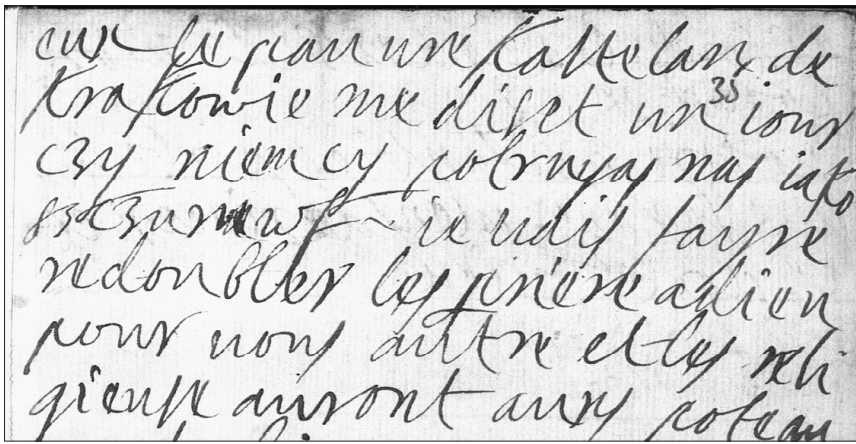 eux le pauure Kastelan de
Krakowie me diset un 35 iour
czy niemcy potrujas nas iako
szczuruw ie uais fayre
redoubler les priere a dieu
pour nous autre et les reli
gieuse auront aures poteau